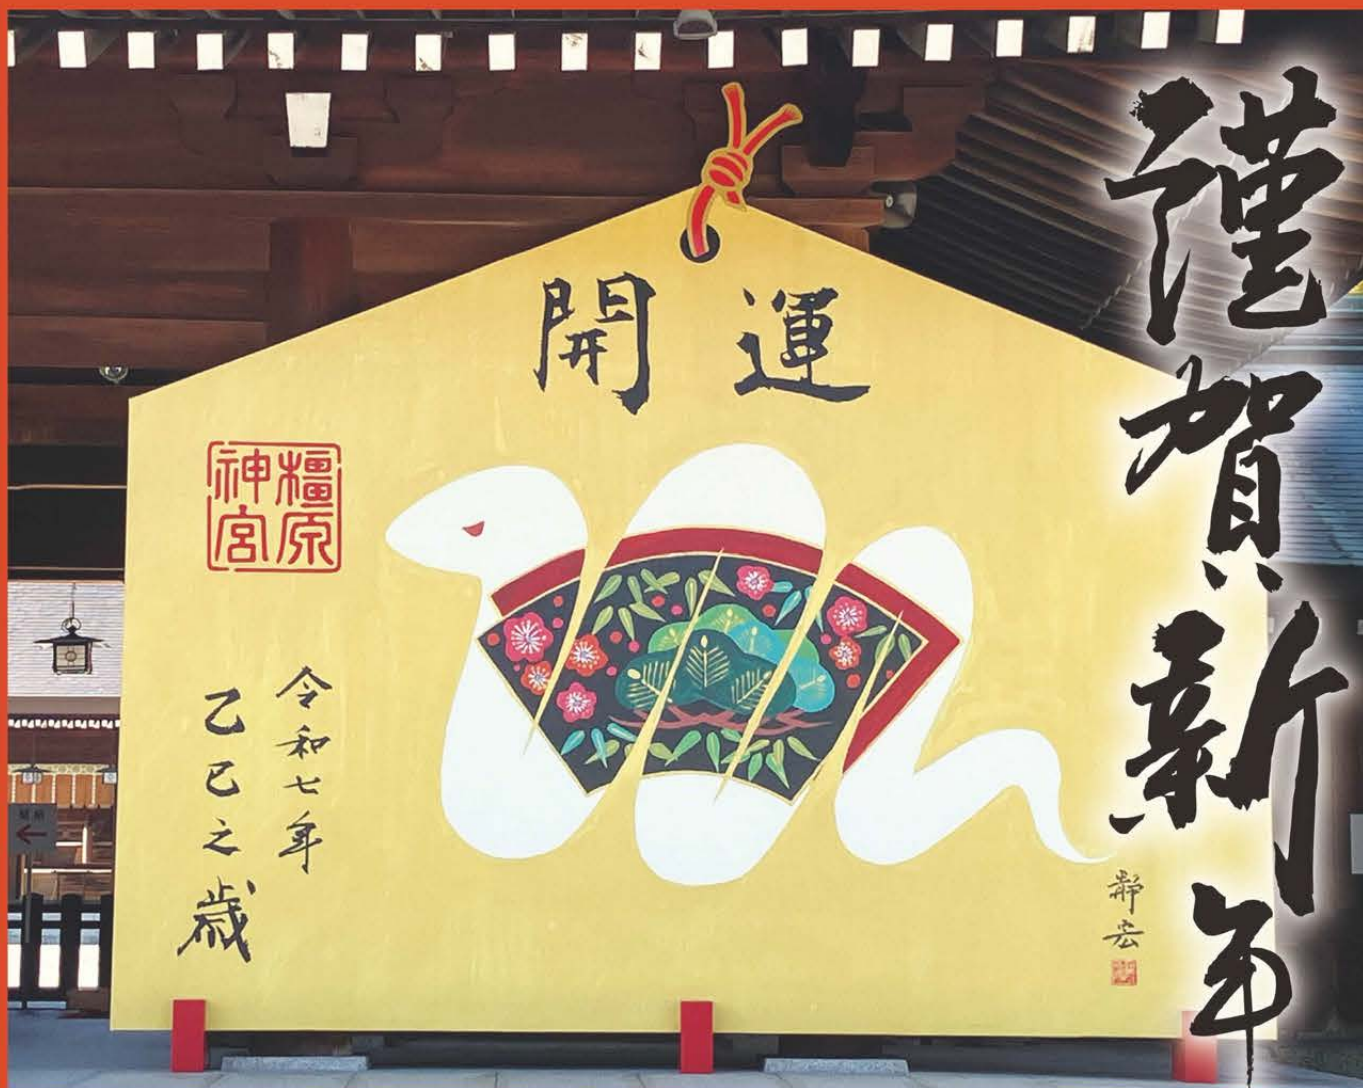 謹賀新年
開運
橿原
神宮
令和七年
乙巳之歳
静宏